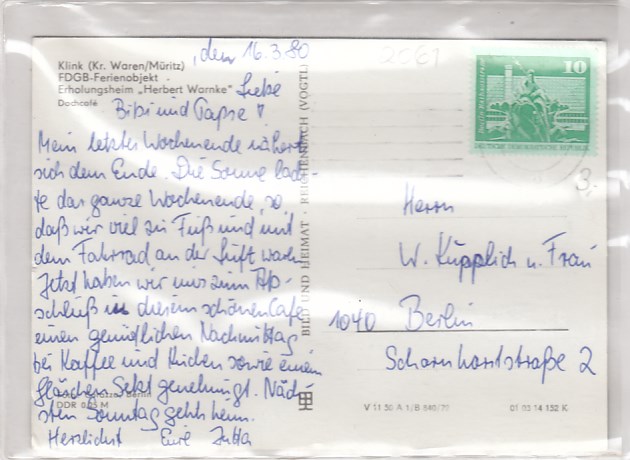 , den 16.3.80
Klink (Kr. Waren/Müritz)
FDGB-Ferienobjekt
Erholungsheim „Herbert Warnke"
Dachcafé
Liebe
Bibi und Papse!
Mein letztes Wochenende nähert
sich dem Ende. Die Sonne lach-
te das ganze Wochenende, so
daß wir viel zu Fuß und mit
dem Fahrrad an der Luft waren
Jetzt haben wir uns zum Ab-
schluß in diesem schönen Cafe
einen gemütlichen Nachmittag
bei Kaffee und Kuchen sowie einem
Fläschen Sekt genehmigt. Näch-
sten Sonntag gehts heim.
Herzlichst Eure Jutta
Berlin
DDR 0,25 M
BILD UND HEIMAT · REICHENBACH (VOGTL)
2061
10
DEUTSCHE DEMOKRATISCHE REPUBLIK
3,-
Herrn
W. Küpplich u. Frau
1040 Berlin
Scharnhorststraße 2
V 11 50 A 1/B 840/79
01 03 14 152 K